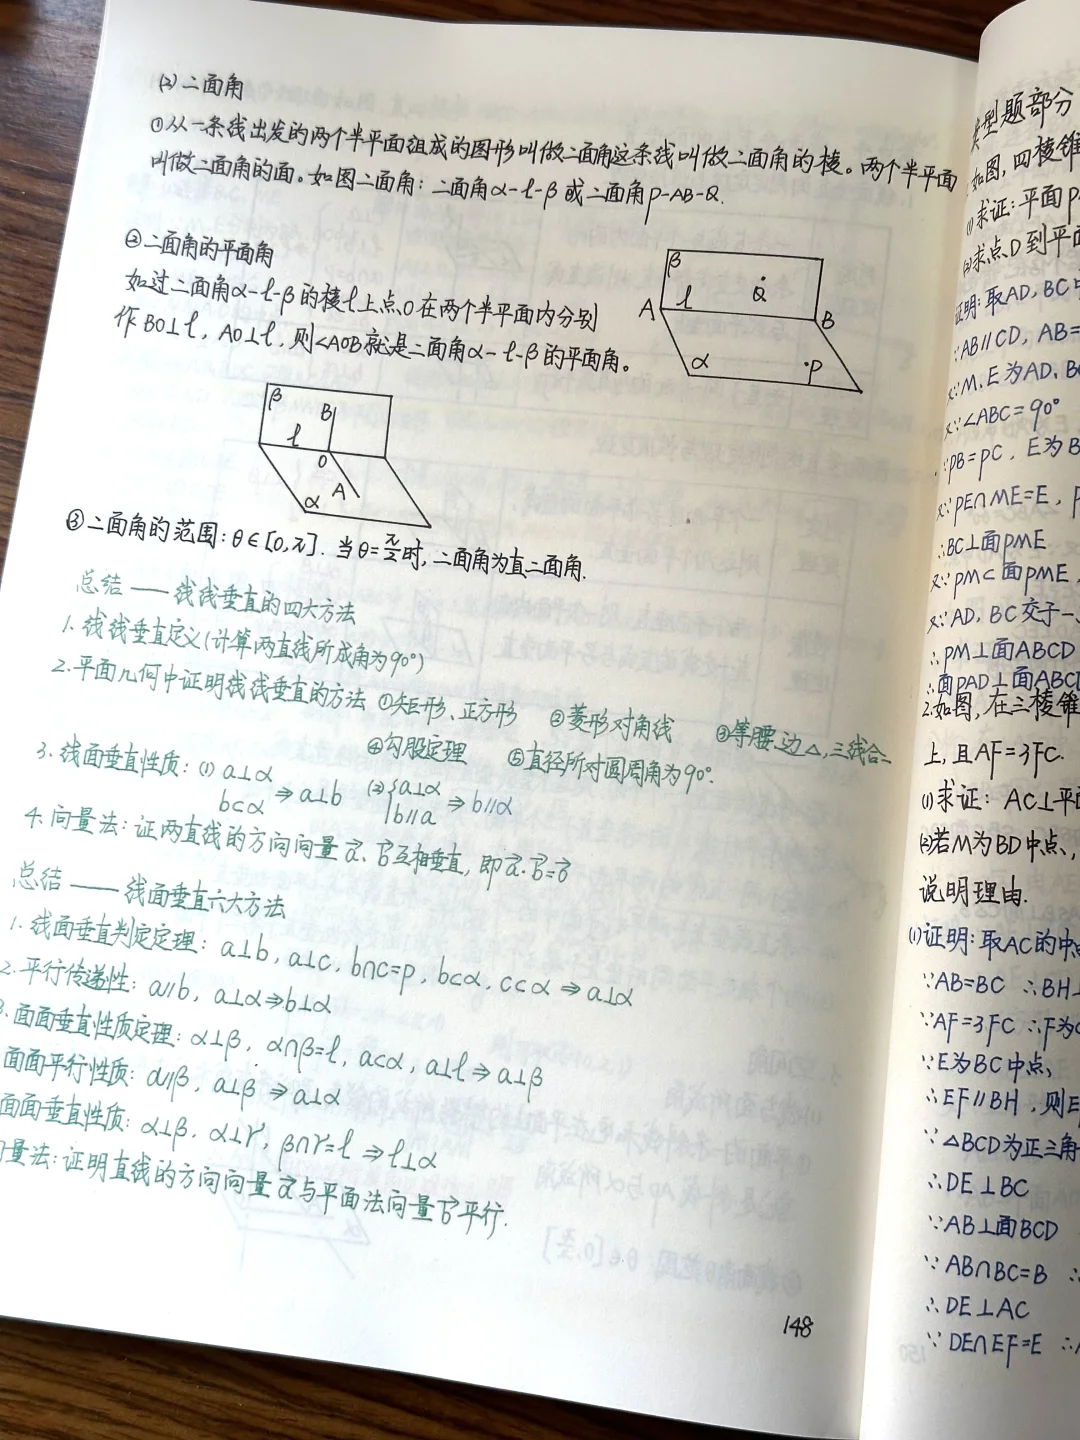 (2) 二面角
①从一条线出发的两个半平面组成的图形叫做二面角这条线叫做二面角的棱。两个半平面
叫做二面角的面。如图二面角：二面角α-l-β 或二面角P-AB-Q.
②二面角的平面角
如过二面角α-l-β的棱l上点O在两个半平面内分别
作BO⊥l，AO⊥l，则∠AOB就是二面角α-l-β的平面角。
β
Q
A
l
B
α
P
β
B
l
O
A
α
③二面角的范围：θ∈[0,π]. 当θ=π/2时，二面角为直二面角.
总结——线线垂直的四大方法
1. 线线垂直定义(计算两直线所成角为90°)
2. 平面几何中证明线线垂直的方法 ①矩形、正方形 ②菱形对角线 ③等腰边△，三线合一
④勾股定理 ⑤直径所对圆周角为90°.
3. 线面垂直性质：(1) a⊥α b⊂α ⇒a⊥b (2) {a⊥α b∥a ⇒ b∥α
4. 向量法：证两直线的方向向量a⃗、b⃗互相垂直，即a⃗·b⃗=0⃗
总结——线面垂直六大方法
1. 线面垂直判定定理：a⊥b，a⊥c，b∩c=P，b⊂α，c⊂α ⇒ a⊥α
2. 平行传递性：a∥b，a⊥α⇒b⊥α
3. 面面垂直性质定理：α⊥β，α∩β=l，a⊂α，a⊥l⇒a⊥β
面面平行性质：α∥β，a⊥β ⇒ a⊥α
面面垂直性质：α⊥β，α⊥γ，β∩γ=l ⇒l⊥α
向量法：证明直线的方向向量a⃗与平面法向量b⃗平行.
148
类型题部分
如图，四棱锥
(1)求证：平面P
(2)求点D到平面
证明：取AD，BC中
∵AB∥CD，AB=
又∵M、E为AD、B
又∵∠ABC=90°
∵PB=PC，E为B
又∵PE∩ME=E，P
∴BC⊥面PME
又∵PM⊂面PME，
又∵AD，BC交于一
∴PM⊥面ABCD
∴面PAD⊥面ABCD
2.如图，在三棱锥
上，且AF=3FC.
(1)求证：AC⊥平面
(2)若M为BD中点，
说明理由.
(1)证明：取AC的中点
∵AB=BC ∴BH⊥
∵AF=3FC ∴F为C
∵E为BC中点，
∴EF∥BH，则E
∵△BCD为正三角
∴DE⊥BC
∵AB⊥面BCD
∵AB∩BC=B ∴
∴DE⊥AC
∵DE∩EF=E ∴A